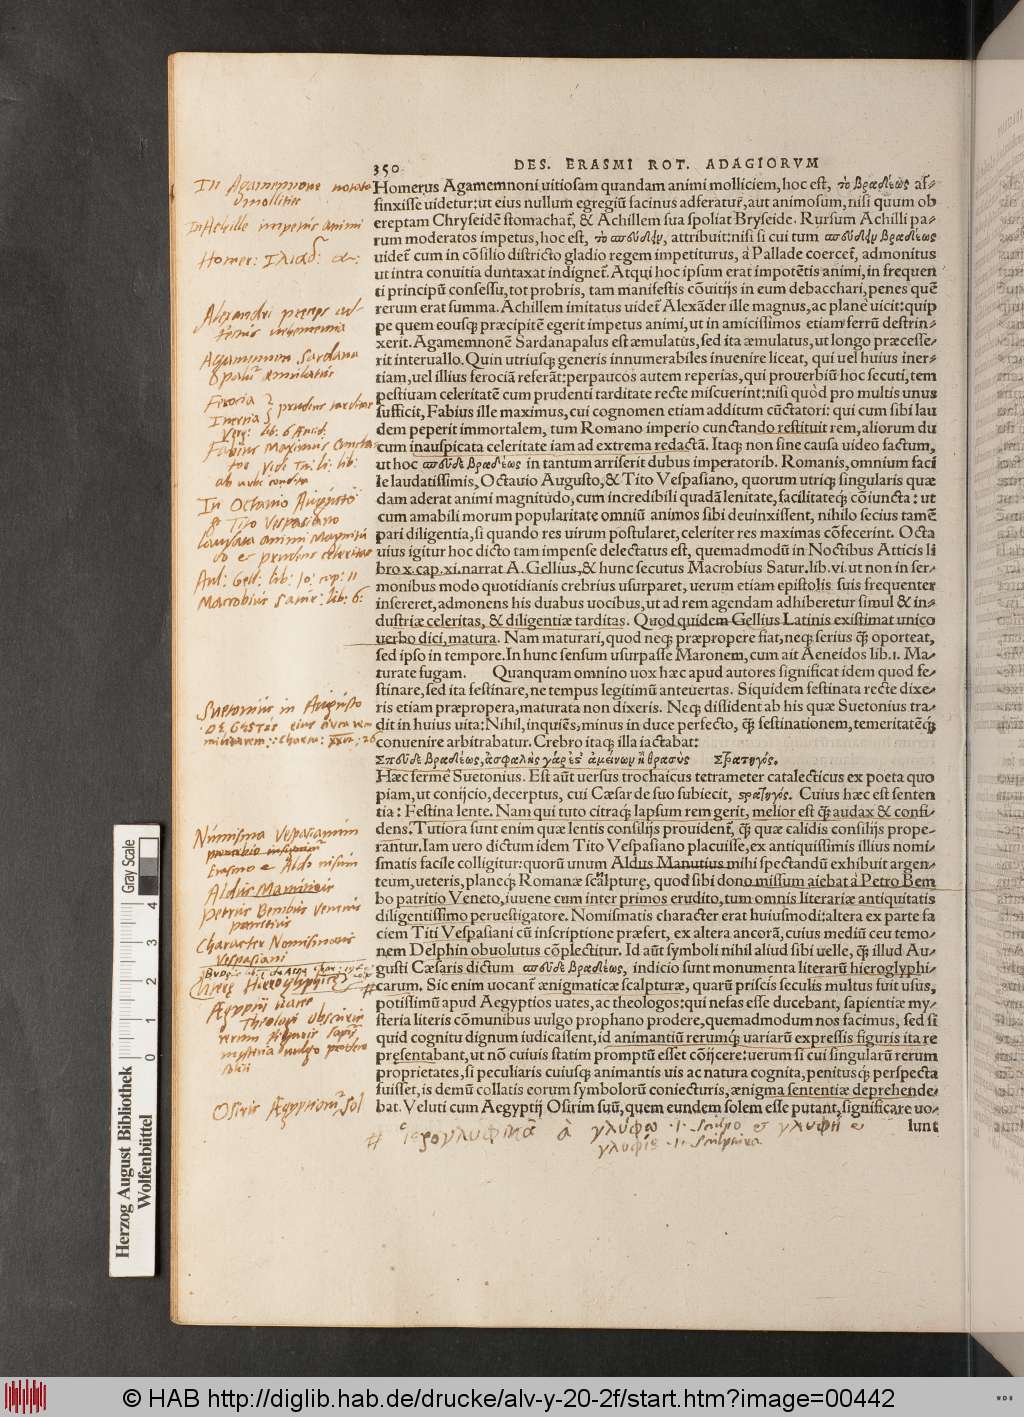 350 DES. ERASMI ROT. ADAGIORVM
Homerus Agamemnoni uitiosam quandam animi molliciem, hoc est, τὸ βραδέως af⸗
finxisse uidetur: ut eius nullum egregiū facinus adferatur, aut animosum, nisi quum ob
ereptam Chryseidē stomachat̃, & Achillem sua spoliat Bryseide. Rursum Achilli pa⸗
rum moderatos impetus, hoc est, τὸ σπεύδειν, attribuit: nisi si cui tum σπεύδειν βραδέως
uidet̃ cum in cōsilio districto gladio regem impetiturus, à Pallade coercet̃, admonitus
ut intra conuitia duntaxat indignet̃. Atqui hoc ipsum erat impotētis animi, in frequen
ti principū consessu, tot probris, tam manifestis cōuitijs in eum debacchari, penes quē
rerum erat summa. Achillem imitatus uidet̃ Alexāder ille magnus, ac planè uicit: quip
pe quem eousq; præcipitē egerit impetus animi, ut in amicissimos etiam ferrū destrin⸗
xerit. Agamemnonē Sardanapalus est æmulatus, sed ita æmulatus, ut longo præcesse⸗
rit interuallo. Quin utriusq; generis innumerabiles inuenire liceat, qui uel huius iner⸗
tiam, uel illius ferociā referāt: perpaucos autem reperias, qui prouerbiū hoc secuti, tem
pestiuam celeritatē cum prudenti tarditate recte miscuerint: nisi quòd pro multis unus
sufficit, Fabius ille maximus, cui cognomen etiam additum cūctatori: qui cum sibi lau
dem peperit immortalem, tum Romano imperio cunctando restituit rem, aliorum du
cum inauspicata celeritate iam ad extrema redactā. Itaq; non sine causa uideo factum,
ut hoc σπεῦδε βραδέως in tantum arriserit dubus imperatorib. Romanis, omnium faci
le laudatissimis, Octauio Augusto, & Tito Vespasiano, quorum utriq; singularis quæ
dam aderat animi magnitudo, cum incredibili quadā lenitate, facilitateq; cōiuncta: ut
cum amabili morum popularitate omniū animos sibi deuinxissent, nihilo secius tamē
pari diligentia, si quando res uirum postularet, celeriter res maximas cōfecerint. Octa
uius igitur hoc dicto tam impense delectatus est, quemadmodū in Noctibus Atticis li
bro x. cap. xi. narrat A. Gellius, & hunc secutus Macrobius Satur. lib. vi. ut non in ser⸗
monibus modo quotidianis crebrius usurparet, uerum etiam epistolis suis frequenter
insereret, admonens his duabus uocibus, ut ad rem agendam adhiberetur simul & in⸗
dustriæ celeritas, & diligentiæ tarditas. Quod quidem Gellius Latinis existimat unico
uerbo dici, matura. Nam maturari, quod neq; præpropere fiat, neq; serius q̃ oporteat,
sed ipso in tempore. In hunc sensum usurpasse Maronem, cum ait Aeneidos lib. 1. Ma⸗
turate fugam. Quanquam omnino uox hæc apud autores significat idem quod fe⸗
stinare, sed ita festinare, ne tempus legitimū anteuertas. Siquidem festinata recte dixe⸗
ris etiam præpropera, maturata non dixeris. Neq; dissident ab his quæ Suetonius tra⸗
dit in huius uita: Nihil, inquiēs, minus in duce perfecto, q̃ festinationem, temeritatēq;
conuenire arbitrabatur. Crebro itaq; illa iactabat:
Σπεῦδε βραδέως, ἀσφαλὴς γάρ ἐστ' ἀμείνων ἢ θρασὺς Στρατηγός.
Hæc fermè Suetonius. Est aūt uersus trochaicus tetrameter catalecticus ex poeta quo
piam, ut conijcio, decerptus, cui Cæsar de suo subiecit, στρατηγός. Cuius hæc est senten
tia: Festina lente. Nam qui tuto citraq; lapsum rem gerit, melior est q̃ audax & confi⸗
dens: Tutiora sunt enim quæ lentis consilijs prouident̃, q̃ quæ calidis consilijs prope⸗
rantur. Iam uero dictum idem Tito Vespasiano placuisse, ex antiquissimis illius nomi⸗
smatis facile colligitur: quorū unum Aldus Manutius mihi spectandū exhibuit argen⸗
teum, ueteris, planeq; Romanæ scalpturę, quod sibi dono missum aiebat à Petro Bem
bo patritio Veneto, iuuene cum inter primos erudito, tum omnis literariæ antiquitatis
diligentissimo peruestigatore. Nomismatis character erat huiusmodi: altera ex parte fa
ciem Titi Vespasiani cū inscriptione præfert, ex altera ancorā, cuius mediū ceu temo⸗
nem Delphin obuolutus cōplectitur. Id aūt symboli nihil aliud sibi uelle, q̃ illud Au⸗
gusti Cæsaris dictum σπεῦδε βραδέως, indicio sunt monumenta literarū hieroglyphi⸗
carum. Sic enim uocant̃ ænigmaticæ scalpturæ, quarū priscis seculis multus fuit usus,
potissimū apud Aegyptios uates, ac theologos: qui nefas esse ducebant, sapientiæ my⸗
steria literis cōmunibus uulgo prophano prodere, quemadmodum nos facimus, sed si
quid cognitu dignum iudicassent, id animantiū rerumq; uariarū expressis figuris ita re
presentabant, ut nō cuiuis statim promptū esset cōijcere: uerum si cui singularū rerum
proprietates, si peculiaris cuiusq; animantis uis ac natura cognita, penitusq; perspecta
fuisset, is demū collatis eorum symbolorū coniecturis, ænigma sententiæ deprehende
bat. Veluti cum Aegyptij Osirim suū, quem eundem solem esse putant, significare uo⸗
lunt
In Agamemnone notata
mollities
In Achille impetus animi
Homer: Ἰλιάδ: α:
Alexandri præceps
Agamemnon Sardana
pali æmulator
Ferocia
Inertia prudens tarditas
Verg: lib: 6 Æneid:
Fabius Maximus Cuncta
tor Vide Ti: Li: lib:
ab urbe condita
In Octavio Augusto
& Tito Vespasiano
laudata animi magnitu
do et prudens celeritas
Aul: Gell: lib: 10: cap: 11
Macrobius Satur: lib: 6:
Suetonius in Augusto
militarem: Charta: XXVI: 26
Numisma Vespasianum
Erasmo e Aldo visum
Aldus Manutius
Petrus Bembus Venetus
patritius
Character Nomismatis
Vespasiani
Literę Hieroglyphicę
#
Ægyptij uates
Theologi
rerum figuris
mysteria uulgo
Osiris Ægyptiorum Sol
# Ἱερογλυφικὰ à γλύφω .i. sculpo et γλυφὴ e
γλυφίς .i. sculptura
Herzog August Bibliothek
Wolfenbüttel
Gray Scale
0 1 2 3 4
© HAB http://diglib.hab.de/drucke/alv-y-20-2f/start.htm?image=00442